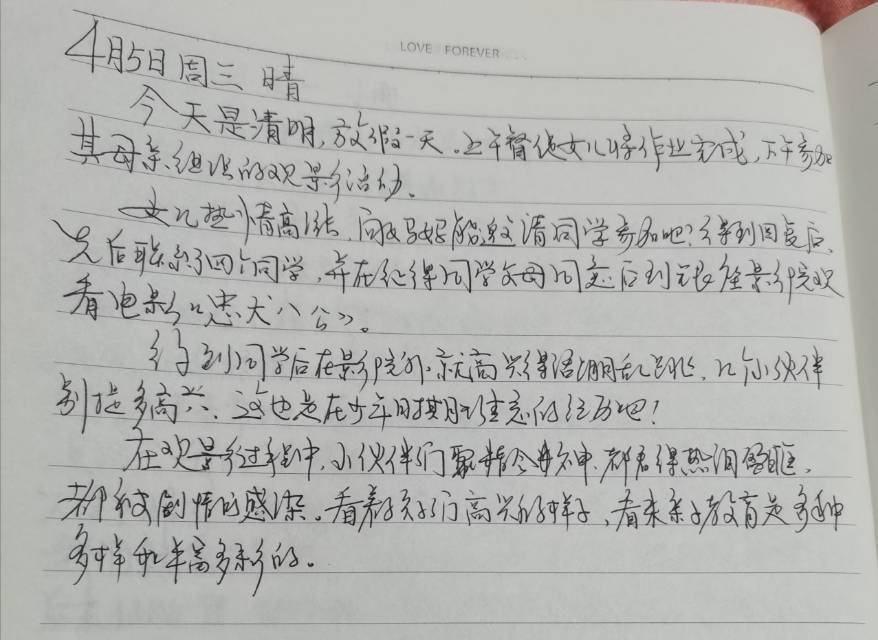 LOVE FOREVER
4月5日 周三 晴
今天是清明,放假一天.上午督促女儿将作业完成,下午参加
其母亲组织的观影活动.
女儿热情高涨,问我妈妈能邀请同学参加吧?得到回复后,
先后联系了四个同学,并在征得同学父母同意后到影院观
看电影《忠犬八公》。
得到同学后在影院外.就高兴得活蹦乱跳,几个小伙伴
别提多高兴.这也是在少年时期难忘的经历吧!
在观影过程中,小伙伴们聚精会神.都看得热泪盈眶,
都被剧情的感染.看着孩子们高兴的样子,看来亲子教育是多种
多样和丰富多彩的.